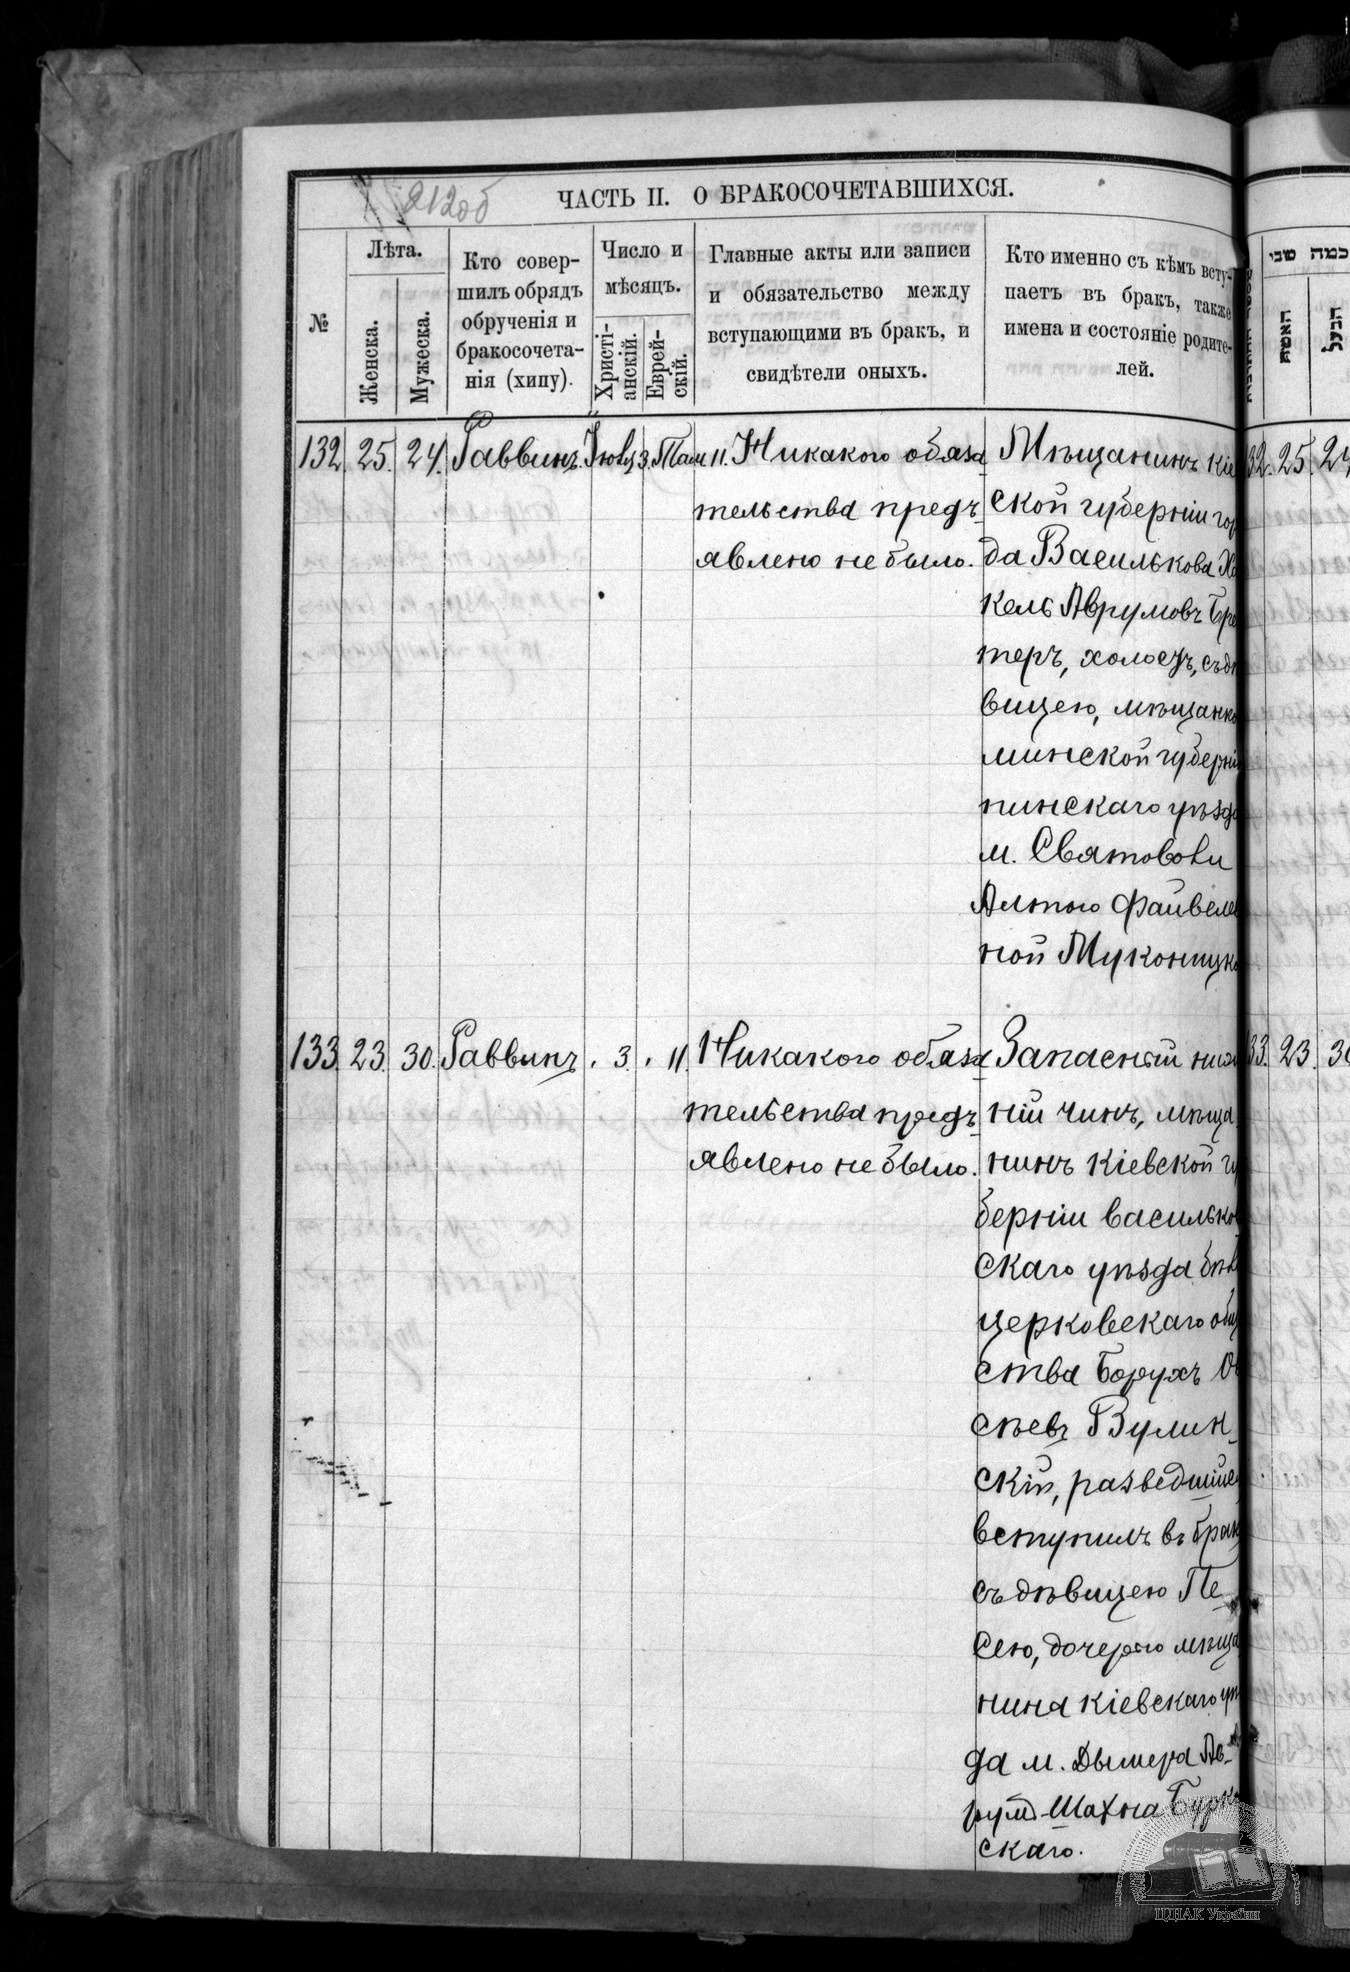 212об
ЧАСТЬ II. О БРАКОСОЧЕТАВШИХСЯ.
№
Лѣта.
Женска.
Мужеска.
Кто совер-
шилъ обрядъ
обрученія и
бракосочета-
нія (хипу).
Число и
мѣсяцъ.
Христі-
анскій.
Еврей-
скій.
Главные акты или записи
и обязательство между
вступающими въ бракъ, и
свидѣтели оныхъ.
Кто именно съ кѣмъ всту-
паетъ въ бракъ, также
имена и состояніе родите-
лей.
כמה שני
האשה
הבעל
132. 25. 24. Раввинъ. 3. Там 11. Никакого обяза
тельства предъ-
явлено не было.
Мѣщанинъ Кіе
ской губерніи гор
да Василькова Ха
кель Аврумовъ Бре
теръ, холостъ, съ дѣ
вицею, мѣщанко
минской губерні
пинскаго уѣзда
м. Святоволи
Алтою Файвеле
ной Муконицко
32. 25. 24
133. 23. 30. Раввинъ. 3. 11. Никакого обяза
тельства предъ-
явлено не было.
Запасный ниж
ній чинъ, мѣща
нинъ Кіевской гу
берніи васильков
скаго уѣзда бѣло
церковскаго общ
ства Борухъ Ов
сѣевъ Вулин-
скій, разведшійс
вступилъ въ брак
съ дѣвицею Пе-
сею, дочерью мѣща
нина Кіевскаго уѣз
да м. Дымера Ав-
рум-Шахна Бурко
скаго.
33. 23. 30
ЦДІАК України